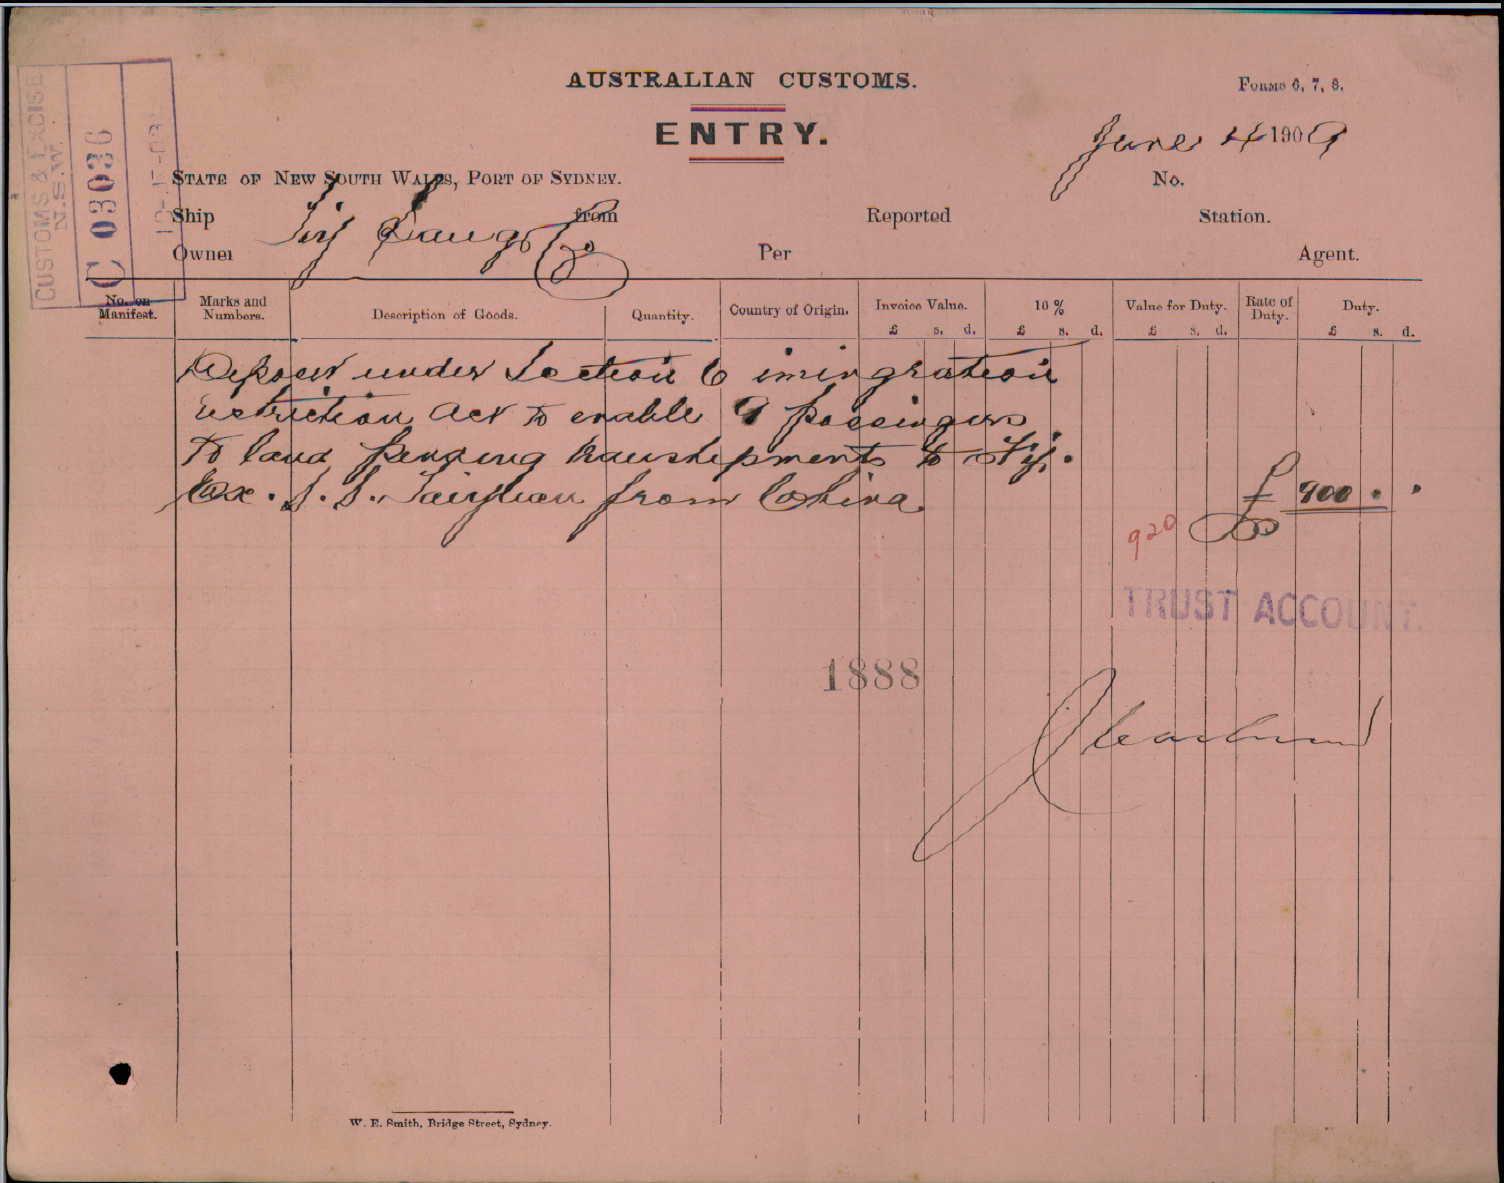 AUSTRALIAN CUSTOMS.
FORMS 6, 7, 8.
ENTRY.
June 4 1909
STATE OF NEW SOUTH WALES, PORT OF SYDNEY.
No.
Ship from Reported Station.
Owner Per Agent.
CUSTOMS & EXCISE
N.S.W.
C 03036
No. on Manifest. Marks and Numbers. Description of Goods. Quantity. Country of Origin. Invoice Value. 10 % Value for Duty. Rate of Duty. Duty.
£ s. d. £ s. d. £ s. d. £ s. d.
Deposit under Section 6 imigration
restriction Act to enable 9 passengers
to land pending transhipments to Fiji.
Ex. S.S. Taiyuan from China
£ 900 . .
920
TRUST ACCOUNT.
1888
W. E. Smith, Bridge Street, Sydney.